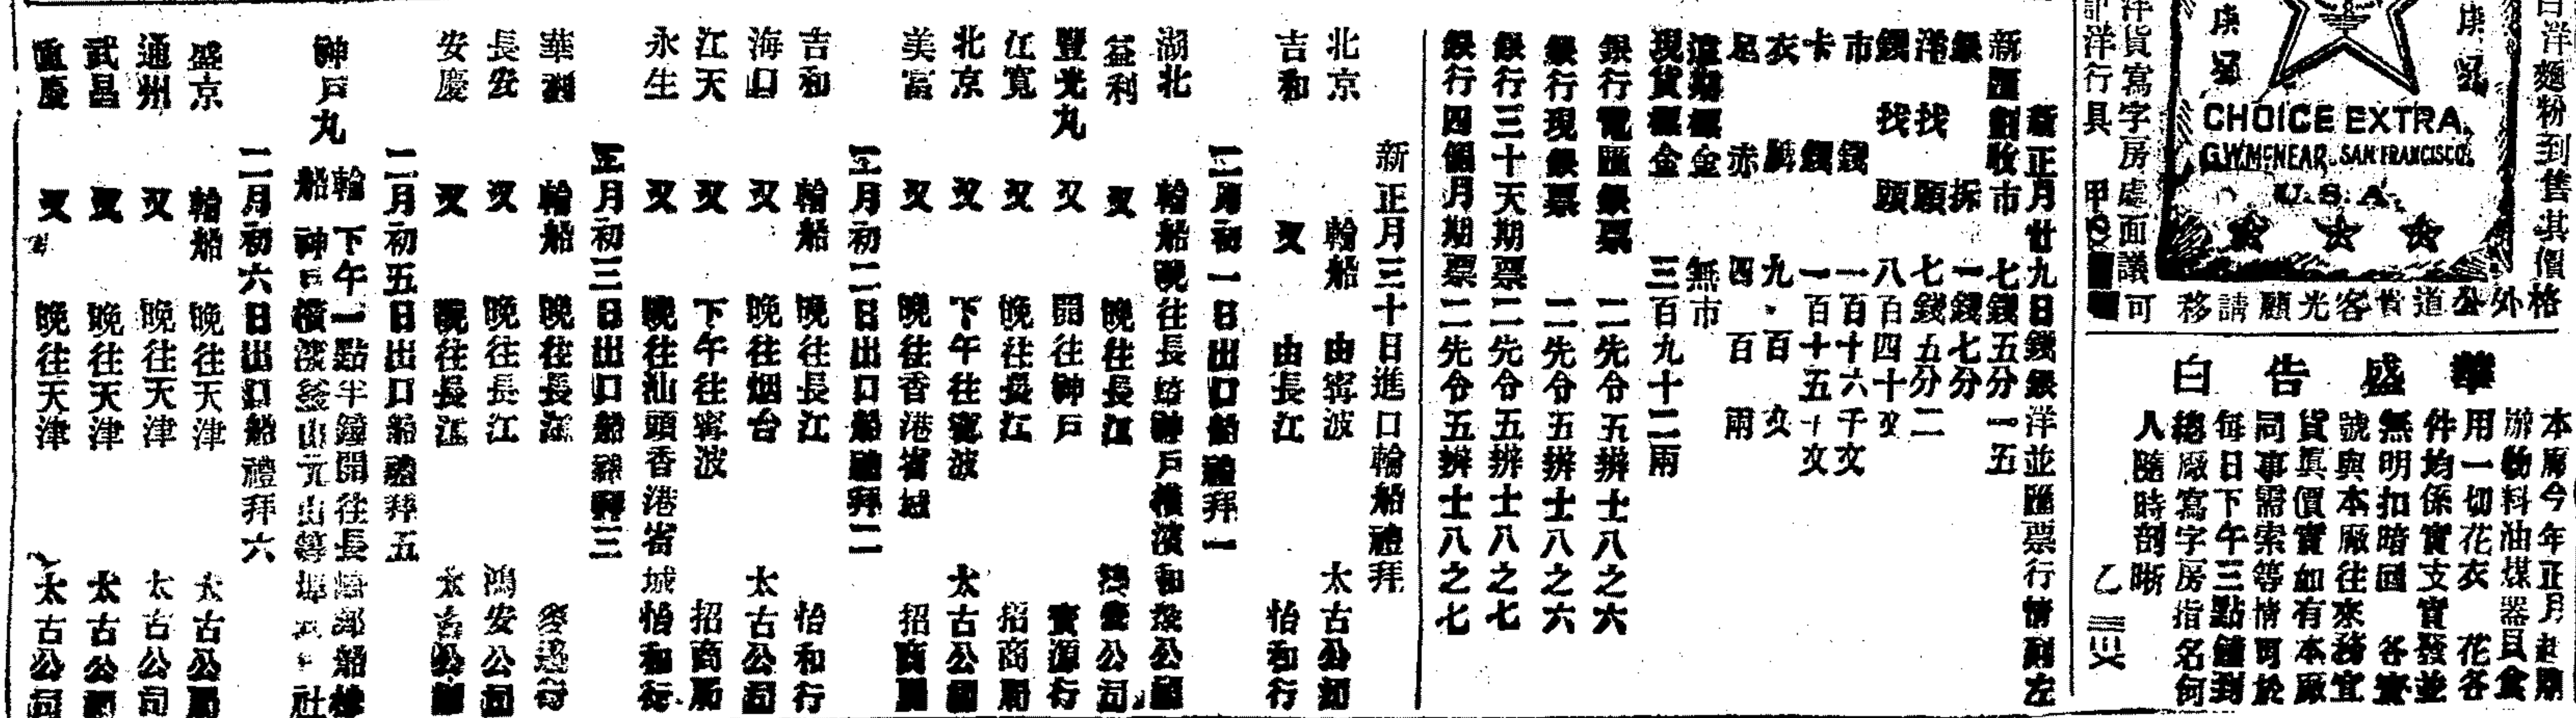 白洋麵粉到售其價格
外公道貴客光顧請移
洋貨寫字房處面議可
洋行具
甲
庚
庚
CHOICE EXTRA
G.W.McNEAR. SAN FRANCISCO.
U.S.A.
華盛告白
本廠今年正月起
辦物料油煤器具食
用一切花衣 花各
件均係實支實發並
無明扣暗回 各寶
號與本廠往來務宜
貨真價實如有本廠
同事需索等情可於
每日下午三點鐘到
總廠寫字房指名何
人隨時剖晰
乙
新正月廿九日錢銀洋並匯票行情列左
新匯劃收市 七錢五分一五
銀拆 一錢七分
洋找頭 七錢五分二
錢找頭 八百四十文
市錢 一百十六千文
卡錢 一百十五千文
衣牌 九百文
足赤 四百兩
遠期標金 無市
現貨標金 三百九十二兩
銀行電匯銀票 二先令五辨士八之六
銀行現銀票 二先令五辨士八之六
銀行三十天期票 二先令五辨士八之七
銀行四個月期票 二先令五辨士八之七
新正月三十日進口輪船禮拜
北京 輪船 由寧波 太古公司
吉和 又 由長江 怡和行
二月初一日出口船禮拜一
湖北 輪船晚往長崎神戶橫濱 和發公司
益利 又 晚往長江 鴻安公司
豐光丸 又 開往神戶 寶源行
江寬 又 晚往長江 招商局
北京 又 下午往寧波 太古公司
美富 又 晚往香港省城 招商局
二月初二日出口船禮拜二
吉和 輪船 晚往長江 怡和行
海口 又 晚往烟台 太古公司
江天 又 下午往寧波 招商局
永生 又 晚往汕頭香港省城 怡和行
二月初三日出口船禮拜三
華利 輪船 晚往長江 麥邊行
長安 又 晚往長江 鴻安公司
安慶 又 晚往長江 太古公司
二月初五日出口船禮拜五
神戶丸 輪船 下午一點半鐘開往長崎神戶橫濱釜山元山等埠 郵船株式會社
二月初六日出口船禮拜六
盛京 輪船 晚往天津 太古公司
通州 又 晚往天津 太古公司
武昌 又 晚往天津 太古公司
重慶 又 晚往天津 太古公司